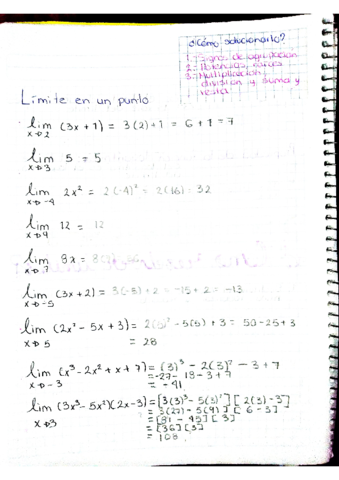 ¿Cómo solucionarlo?
1. Signos de agrupación
2. Potencias, raíces
3. Multiplicación
división y suma y
resta
Límite en un punto
lim (3x + 1) = 3(2)+1 = 6+1 = 7
x→2
lim 5 = 5
x→3
lim 2x² = 2(-4)² = 2(16) = 32
x→-4
lim 12 = 12
x→9
lim 8x =
lim (3x+2) = 3(-5)+2 = -15+2 = -13
x→-5
lim (2x² - 5x + 3) = 2(5)² - 5(5) + 3 = 50-25+3
x→5
= 28
lim (x³ - 2x² + x + 7) = (3)³ - 2(3)² - 3 + 7
x→-3
= -27 - 18 - 3 + 7
= -41
lim (3x³ - 5x²)(2x - 3) = [3(3)³ - 5(3)²][2(3) - 3]
x→3
= 3(27) - 5(9)][6-3]
= [81 - 45][3]
= [36][3]
= 108